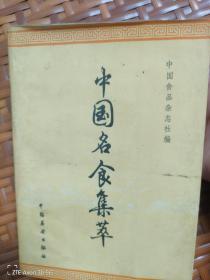 中国食品杂志社编
中国名食集萃
中国商业出版社
ZTE Axon 11 5G